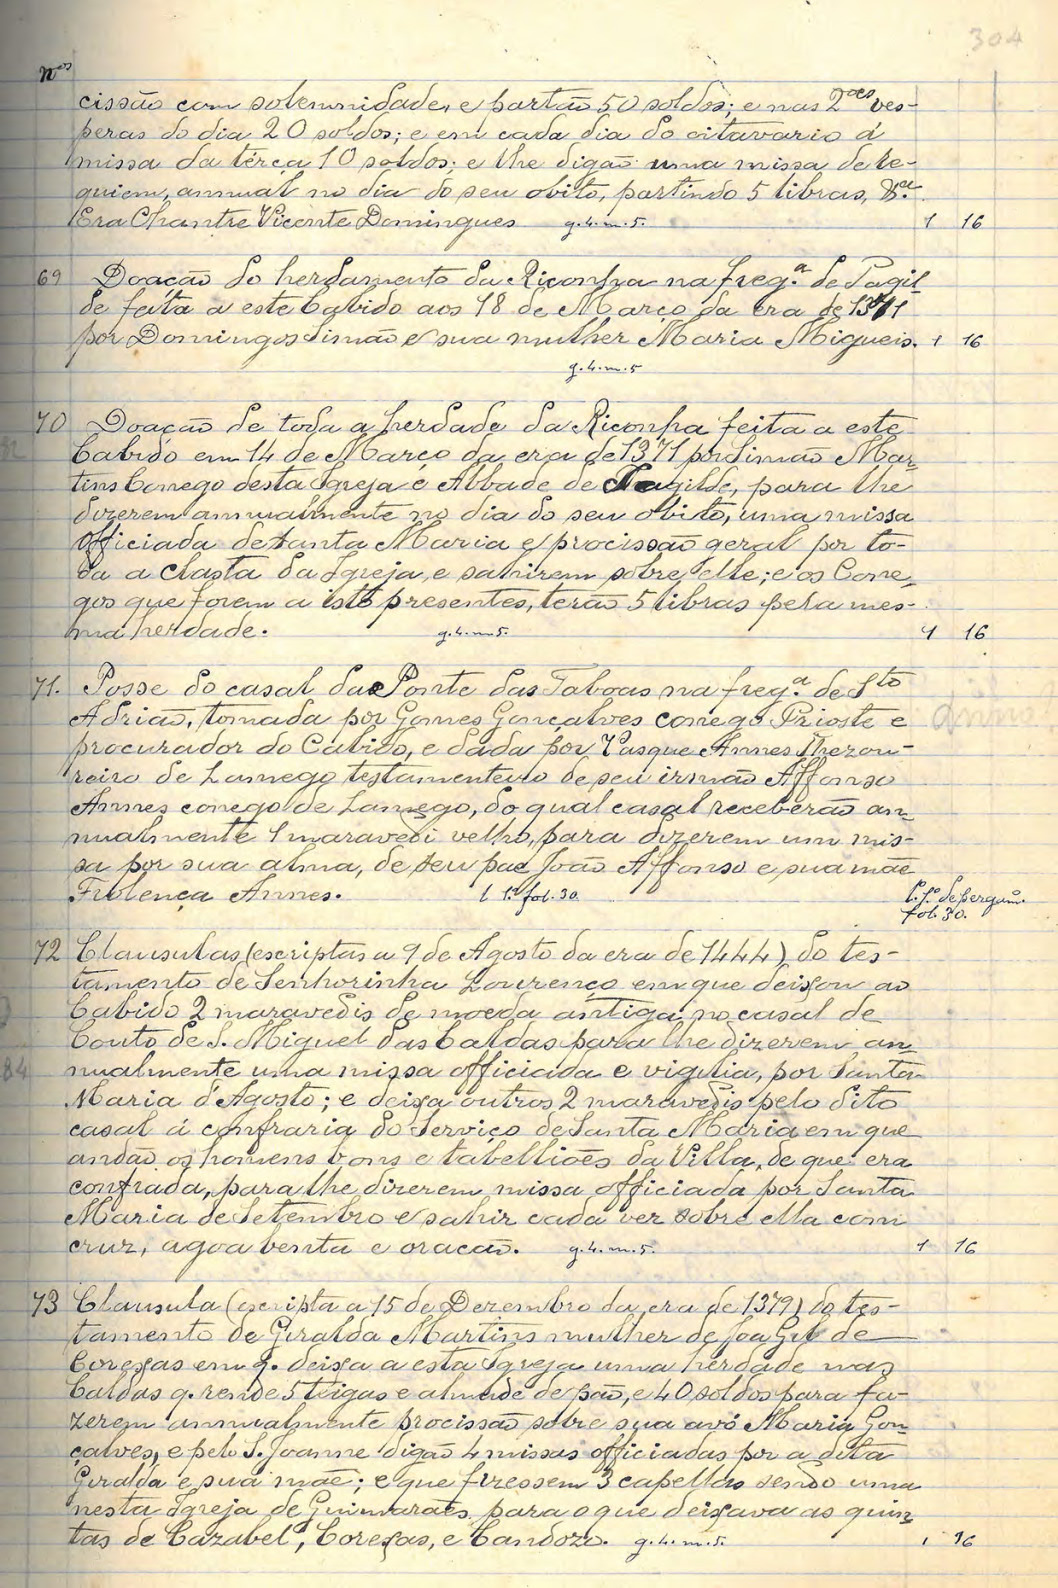 304
nos
cissão com solemnidade, e partão 50 soldos; e nas 2as ves-
peras do dia 20 soldos; e em cada dia do oitavario á
missa da terça 10 soldos; e lhe digão uma missa de re-
quiem, annual no dia do seu obito, partindo 5 libras, &a.
Era Chantre Vicente Domingues g. 4. m. 5. 1 16
69 Doação do herdamento da Riconha na freg.a de Tagil-
de feita a este Cabido aos 18 de Março da era de 1371
por Domingos Simão e sua mulher Maria Migueis. 1 16
g. 4. m. 5
70 Doação de toda a herdade da Riconha feita a este
Cabido em 14 de Março da era de 1371 por Simão Mar-
tins Conego desta Igreja e Abbade de Tagilde, para lhe
dizerem annualmente no dia do seu obito, uma missa
officiada de Santa Maria e procissão geral por to-
da a Clasta da Igreja, e sahirem sobre elle; e os Cone-
gos que forem a isto presentes, terão 5 libras pela mes-
ma herdade. g. 4. m. 5. 1 16
71. Posse do casal da Ponte das Taboas na freg.a de Sto
Adrião, tomada por Gomes Gonçalves conego Prioste e
procurador do Cabido, e dada por Vasque Annes Thezou-
reiro de Lamego testamenteiro de seu irmão Affonso
Annes conego de Lamego, do qual casal receberão an-
nualmente 1 maravedi velho, para dizerem um mis-
sa por sua alma, de seu pae João Affonso e sua mãe
Frolença Annes. L 1.º fol. 30.
L. 1.º de pergam.º
fol. 30.
72 Clausulas (escriptas a 9 de Agosto da era de 1444) do tes-
tamento de Senhorinha Lourenço em que deixou ao
Cabido 2 maravedis de moeda antiga no casal de
Couto de S. Miguel das Caldas para lhe dizerem an-
nualmente uma missa officiada e vigilia, por Santa
Maria d'Agosto; e deixa outros 2 maravedis pelo dito
casal á confraria do Serviço de Santa Maria em que
andão os homens bons e tabelliões da Villa, de que era
confrada, para lhe dizerem missa officiada por Santa
Maria de Setembro e sahir cada vez sobre ella com
cruz, agoa benta e oracão. g. 4. m. 5. 1 16
73 Clausula (escripta a 15 de Dezembro da era de 1379) do tes-
tamento de Giralda Martins mulher de Joa Gil de
Corexas em q. deixa a esta Igreja uma herdade nas
Caldas q. rende 5 teigas e almude de pão, e 40 soldos para fa-
zerem annualmente procissão sobre sua avó Maria Gon-
çalves, e pelo S. Joanne digão 4 missas officiadas por a dita
Giralda e sua mãe; e que fizessem 3 capellas sendo uma
nesta Igreja de Guimarães para o que deixava as quin-
tas de Cazavel, Corexas, e Candozo. g. 4. m. 5. 1 16